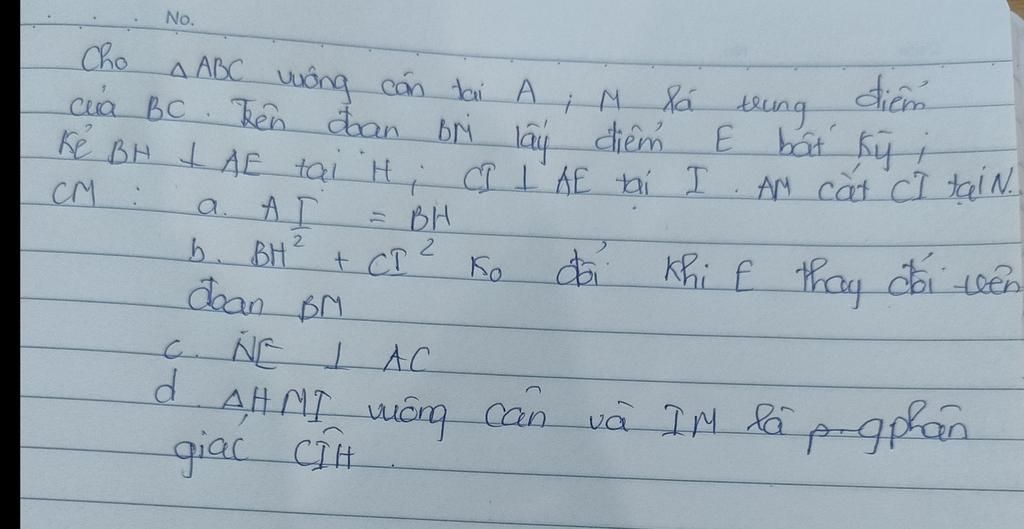 No.
Cho △ABC vuông cân tại A ; M là trung điểm
của BC. Trên đoạn BM lấy điểm E bất kỳ ;
Kẻ BH ⊥ AE tại H ; CI ⊥ AE tại I . AM cắt CI tại N.
CM : a. AI = BH
b. BH² + CI² Ko đổi khi E thay đổi trên
đoạn BM
c. NE ⊥ AC
d △HMI vuông cân và IM là p-g phân
giác CÎH .